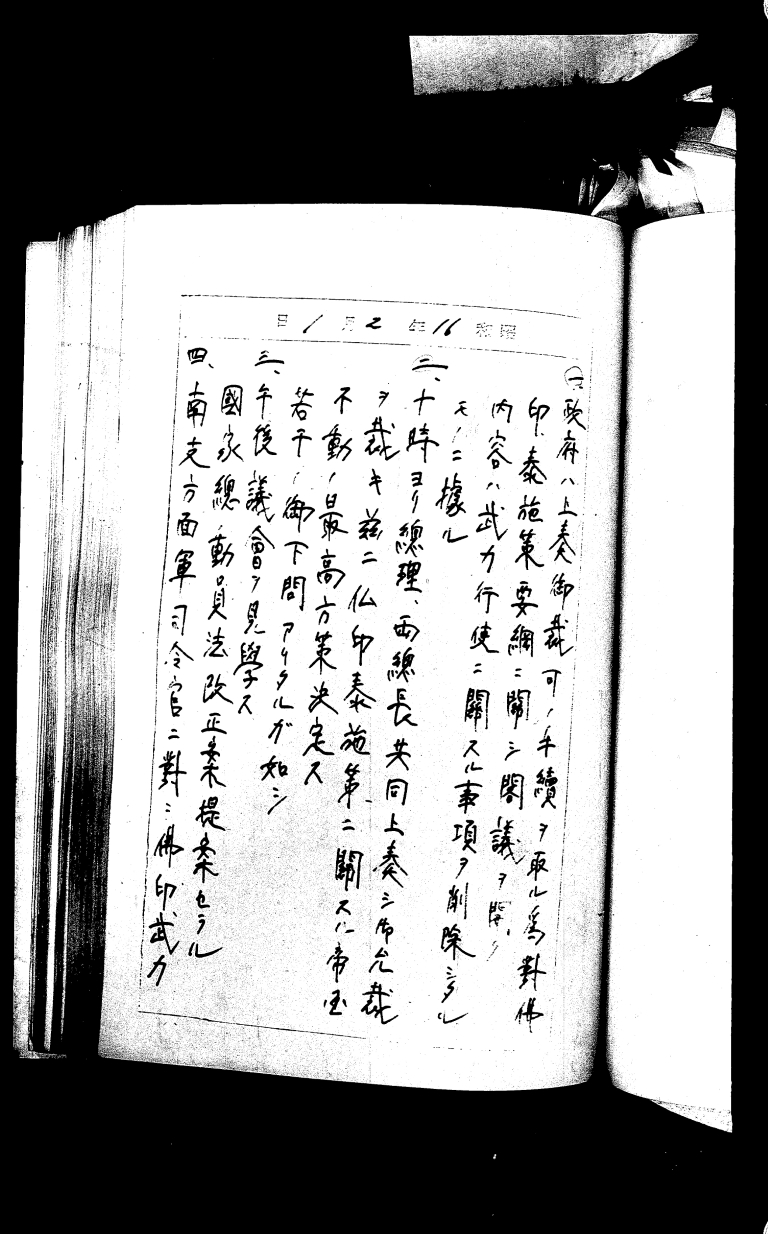 昭和16年2月1日
一、政府ハ上奏御裁可ノ手續ヲ取ル為對佛
印、泰施策要綱ニ關シ閣議ヲ開ク
内容ハ武力行使ニ關スル事項ヲ削除シタル
モノニ據ル
二、十時ヨリ總理、両總長共同上奏シ御允裁
ヲ裁キ茲ニ仏印泰施策ニ關スル帝国
不動ノ最高方策決定ス
若干ノ御下問アリタルガ如シ
三、午後議會ヲ見學ス
國家總動員法改正案提案セラル
四、南支方面軍司令官ニ對シ佛印武力